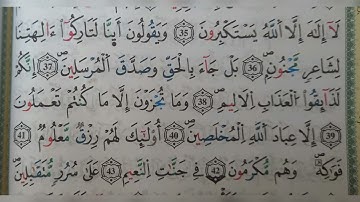 لَآ إِلَٰهَ إِلَّا ٱللَّهُ يَسْتَكْبِرُونَ ﴿35﴾ وَيَقُولُونَ أَئِنَّا لَتَارِكُوٓا۟ ءَالِهَتِنَا
لِشَاعِرٍ مَّجْنُونٍۭ ﴿36﴾ بَلْ جَآءَ بِٱلْحَقِّ وَصَدَّقَ ٱلْمُرْسَلِينَ ﴿37﴾ إِنَّكُمْ
لَذَآئِقُوا۟ ٱلْعَذَابِ ٱلْأَلِيمِ ﴿38﴾ وَمَا تُجْزَوْنَ إِلَّا مَا كُنتُمْ تَعْمَلُونَ
﴿39﴾ إِلَّا عِبَادَ ٱللَّهِ ٱلْمُخْلَصِينَ ﴿40﴾ أُو۟لَٰٓئِكَ لَهُمْ رِزْقٌ مَّعْلُومٌ ﴿41﴾
فَوَٰكِهُ وَهُم مُّكْرَمُونَ ﴿42﴾ فِى جَنَّٰتِ ٱلنَّعِيمِ ﴿43﴾ عَلَىٰ سُرُرٍ مُّتَقَٰبِلِينَ